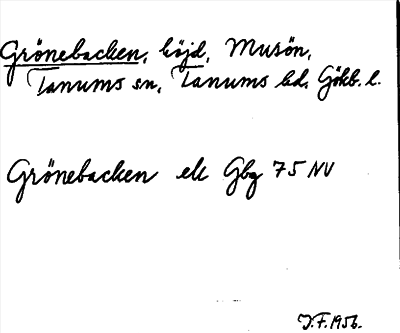 Grönebacken, höjd, Musön,
Tanums sn, Tanums hd, Gökb. l.
Grönebacken ek Gbg 75 NV
J.F. 1956.